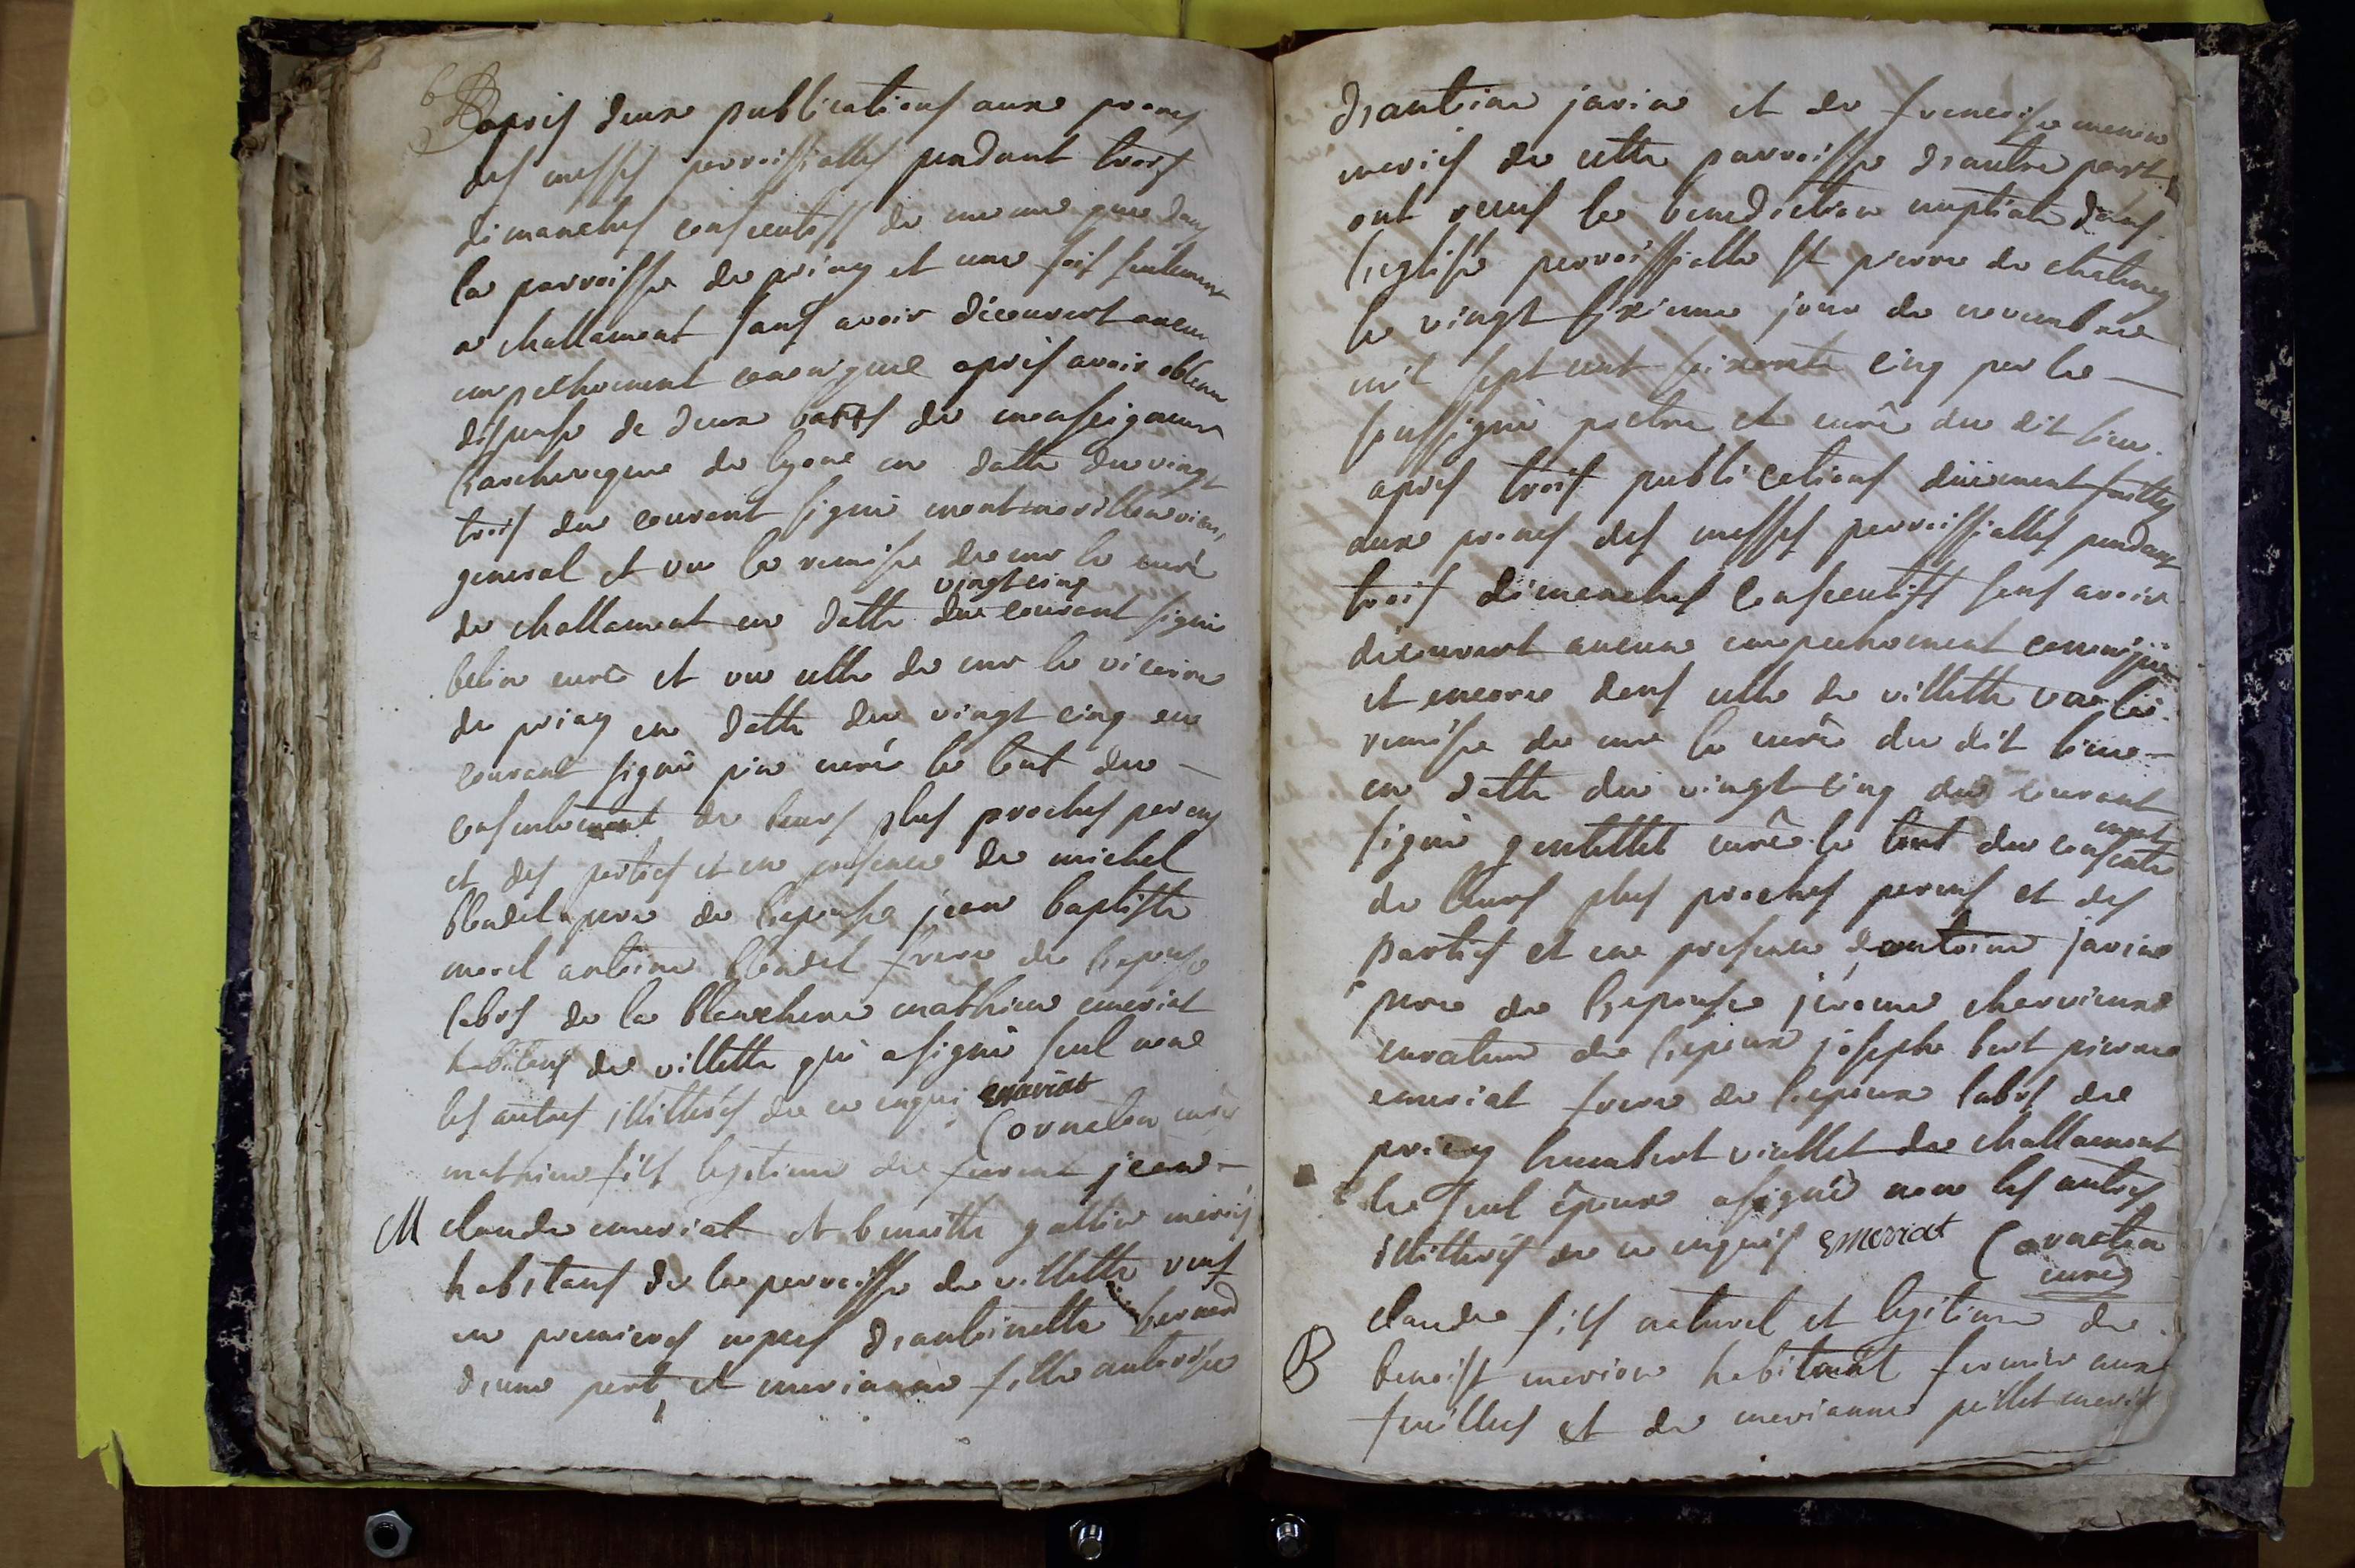 apres deux publications aux prones
des messes parroissialles pendant trois
dimanches consecutifs de meme que dans
la parroisse de priay et une fois seulement
a challamont sans avoir decouvert aucun
empechement canonique apres avoir obtenu
dispense de deux bans de monseigneur
l'archeveque de lyon en datte du vingt
trois du courant signé montmorillon vic
general et vu la remise de mr le curé
de challamont en datte du vingt cinq courant signé
belin curé et vu celle de mr le vicaire
de priay en datte du vingt cinq du
courant signé curé le tout du
consentement de leurs plus proches parens
et des parties et en presence de michel
blondel pere de l'epouse jean baptiste
morel antoine blondel frere de l'epouse
labrs de la blanchere mathieu emeriat
habitans de villette qui a signé seul non
les autres illitterés de ce enquis emeriat
Cornaton curé
mathieu fils legitime de furent jean
M claude emeriat et benoitte gallin mariés
habitans de la parroisse de villette veuf
en premieres nopces d'antoinette bernard
d'une part, et marianne fille autorisée
d'antoine javin et de francoise
mariés de cette parroisse d'autre part
ont reçus la benediction nuptiale dans
l'eglise parroissialle st pierre de chatenay
le vingt sixieme jour de novembre
mil sept cent soixante cinq par le
soussigné pretre et curé du dit lieu.
apres trois publications düement faittes
aux prones des messes parroissialles pendant
trois dimanches consecutifs sans avoir
decouvert aucun empechement canonique
et encore dans celle de villette vu la
remise de mr le curé du dit lieu
en datte du vingt cinq du courant
signé gentellet curé le tout du consentement
de leurs plus proches parens et des
parties et en presence d'antoine javin
pere de l'epouse jerome chervieux
curateur de l'epoux joseph bert pierre
emeriat frere de l'epoux labrs de
priay humbert viallet de challamont
le seul epoux a signé non les autres
illitterés de ce enquis emeriat Cornaton
curé
claude fils naturel et legitime de
B benoist marion habitant fermier aux
feuilles et de marianne pillet mariés